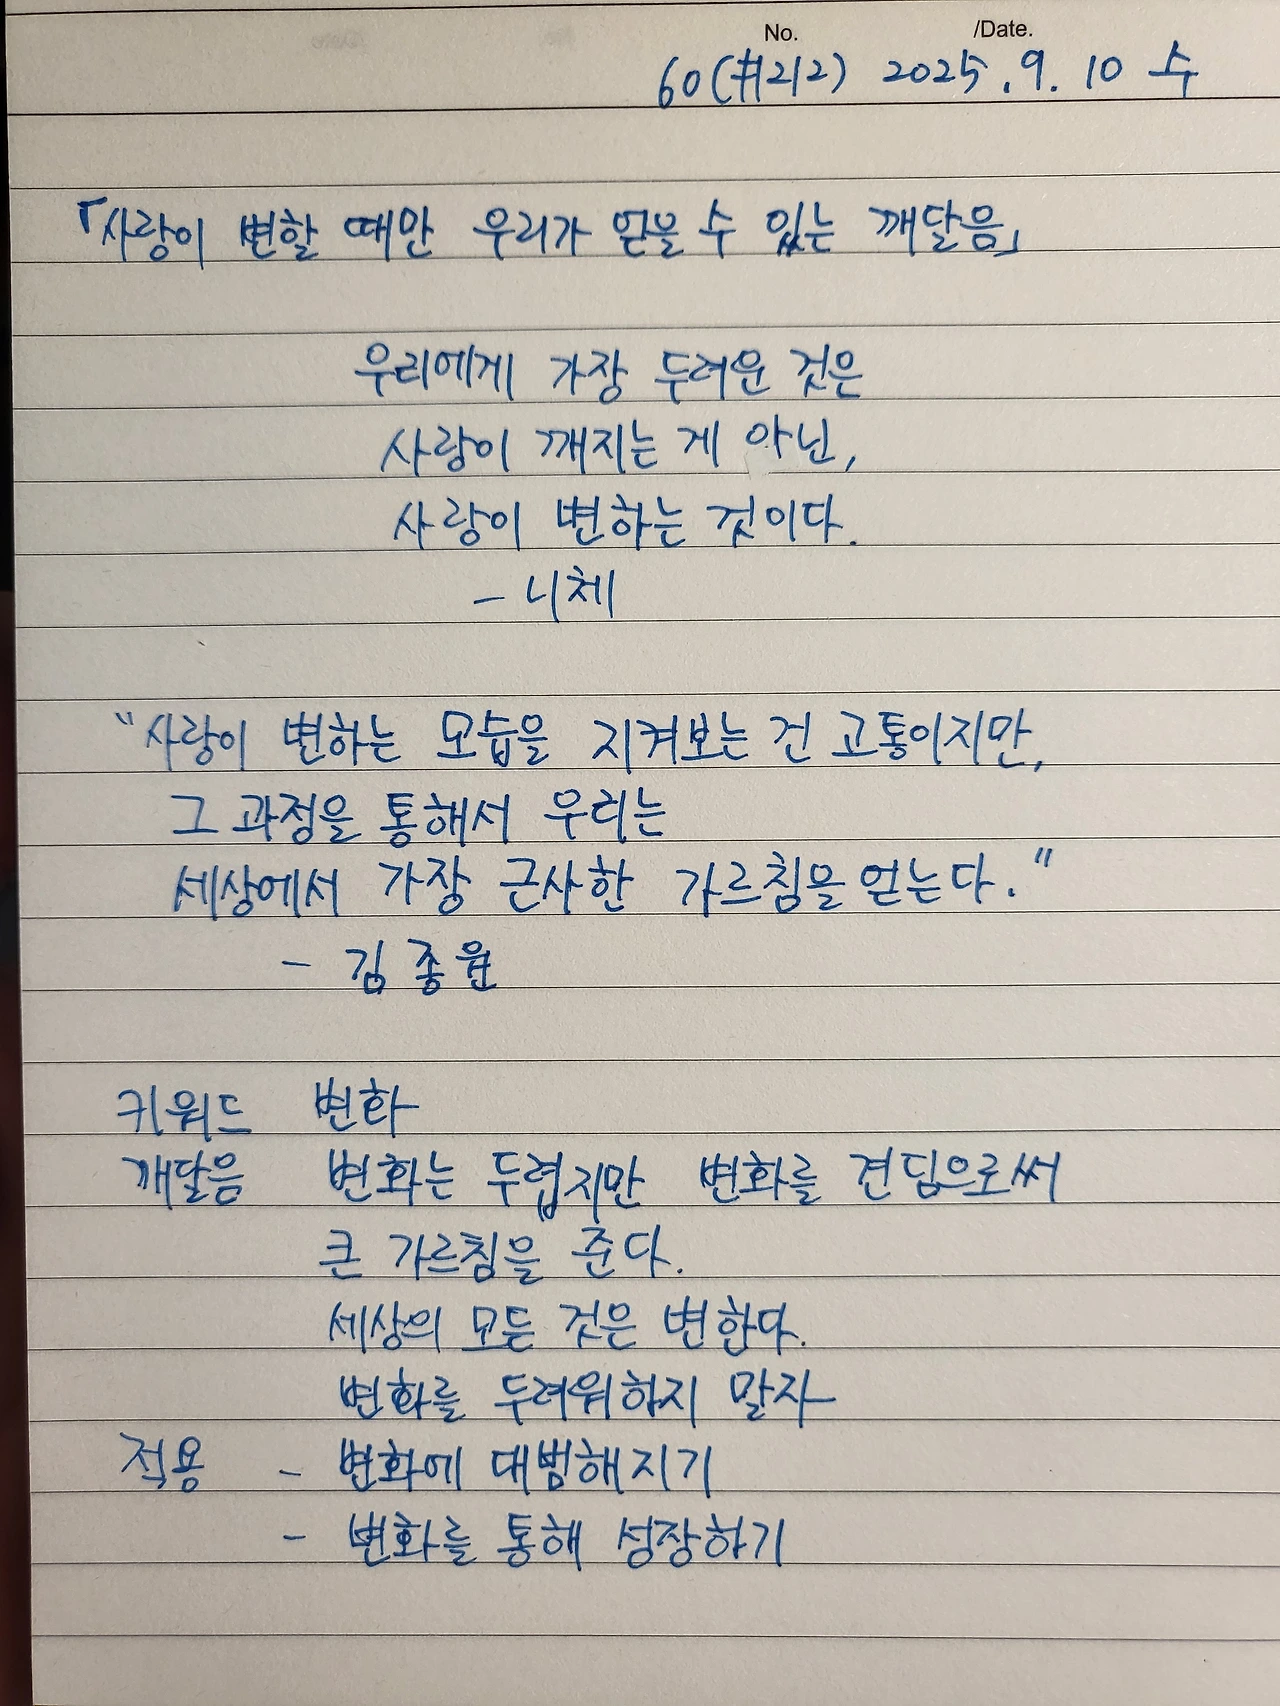 No. /Date.
60(#212) 2025.9.10 수
「사랑이 변할 때만 우리가 얻을 수 있는 깨달음」
우리에게 가장 두려운 것은
사랑이 깨지는 게 아닌,
사랑이 변하는 것이다.
- 니체
"사랑이 변하는 모습을 지켜보는 건 고통이지만,
그 과정을 통해서 우리는
세상에서 가장 근사한 가르침을 얻는다."
- 김종원
키워드 변화
깨달음 변화는 두렵지만 변화를 견딤으로써
큰 가르침을 준다.
세상의 모든 것은 변한다.
변화를 두려워하지 말자
적용 - 변화에 대범해지기
- 변화를 통해 성장하기